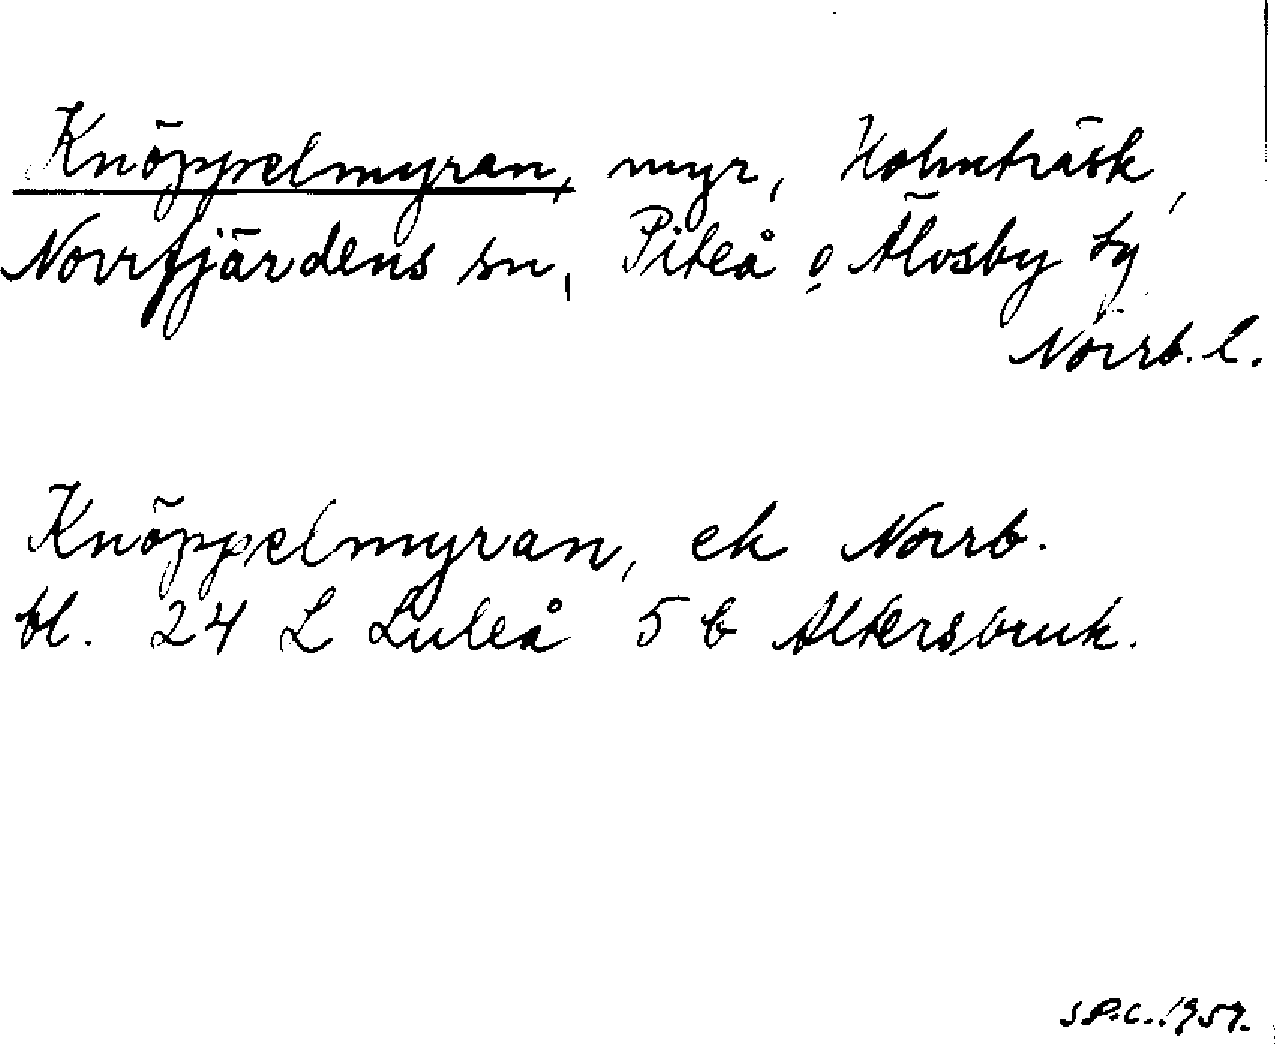 Knöppelmyran, myr, Holmträsk,
Norrfjärdens sn, Piteå o Älvsby tg
Norrb. l.
Knöppelmyran, ek Norrb.
bl. 24 L Luleå 5 b Altersbruk.
S.P.C. 1959.